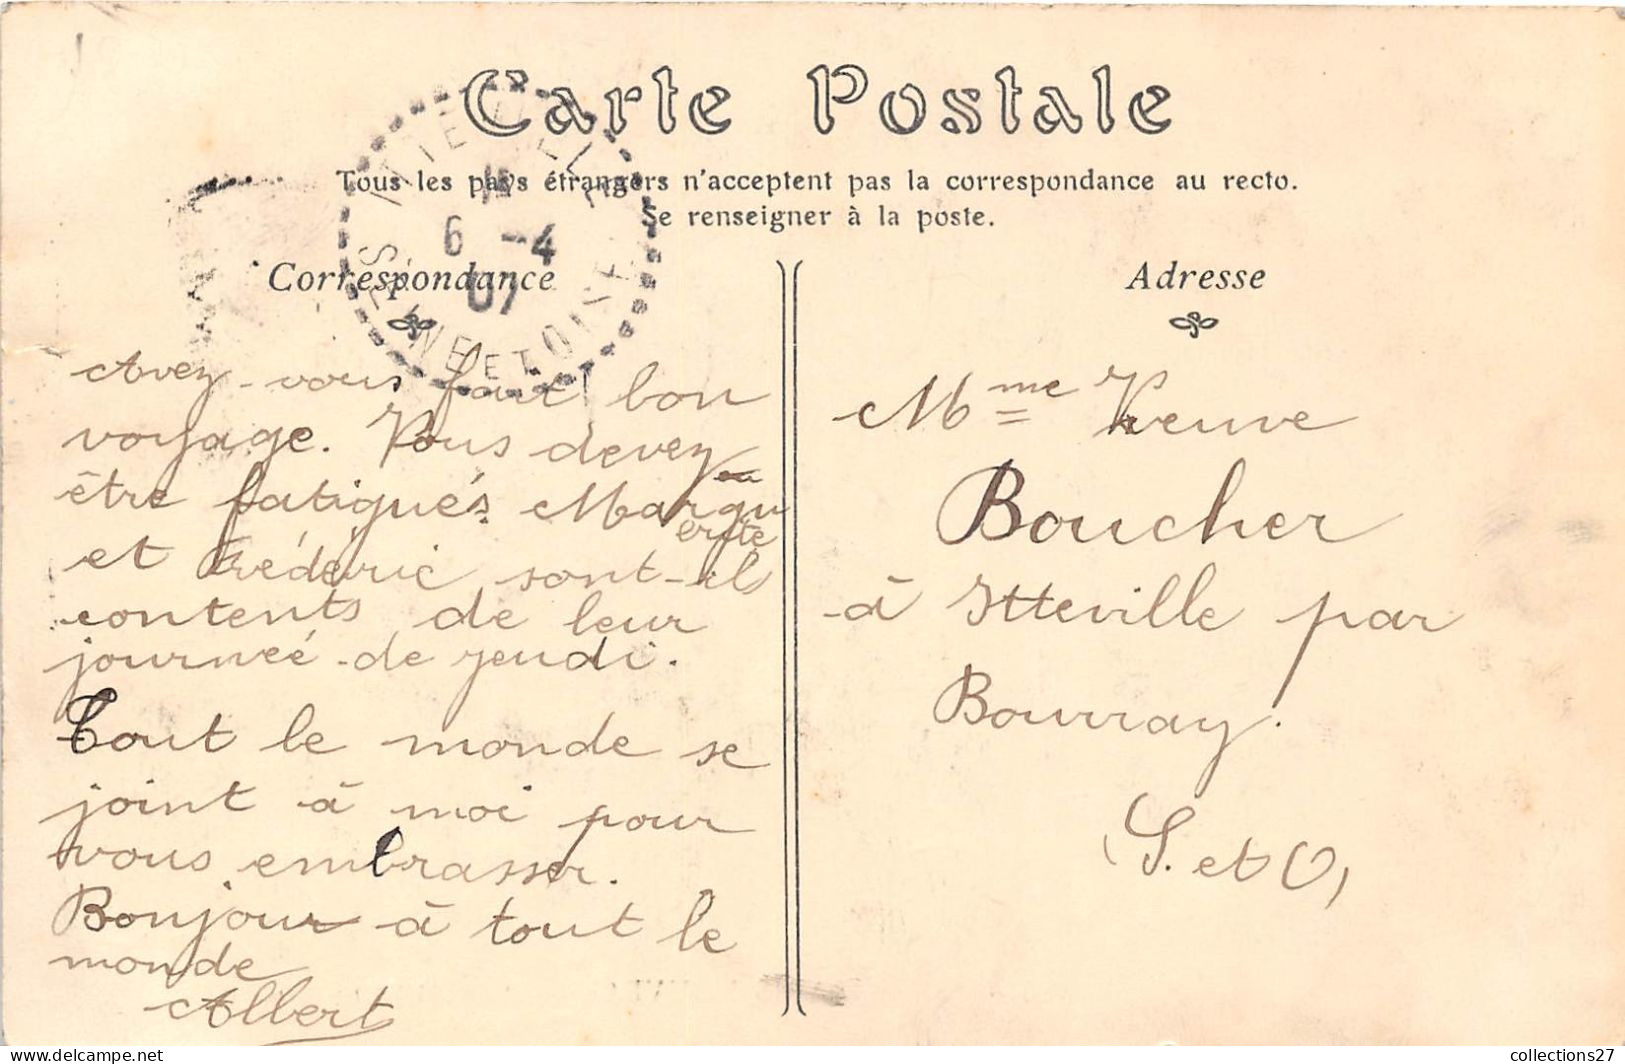 Carte Postale
Tous les pays étrangers n'acceptent pas la correspondance au recto.
Se renseigner à la poste.
6 -4
07
SEINE ET OISE
Correspondance
Avez-vous fait bon
voyage. Vous devez
être fatigués. Margu
erite
et Frédéric sont-ils
contents de leur
journeé de jeudi.
Tout le monde se
joint à moi pour
vous embrasser.
Bonjour à tout le
monde
Albert
Adresse
Mme Veuve
Boucher
à Itteville par
Bourray.
(S. et O)
collections27